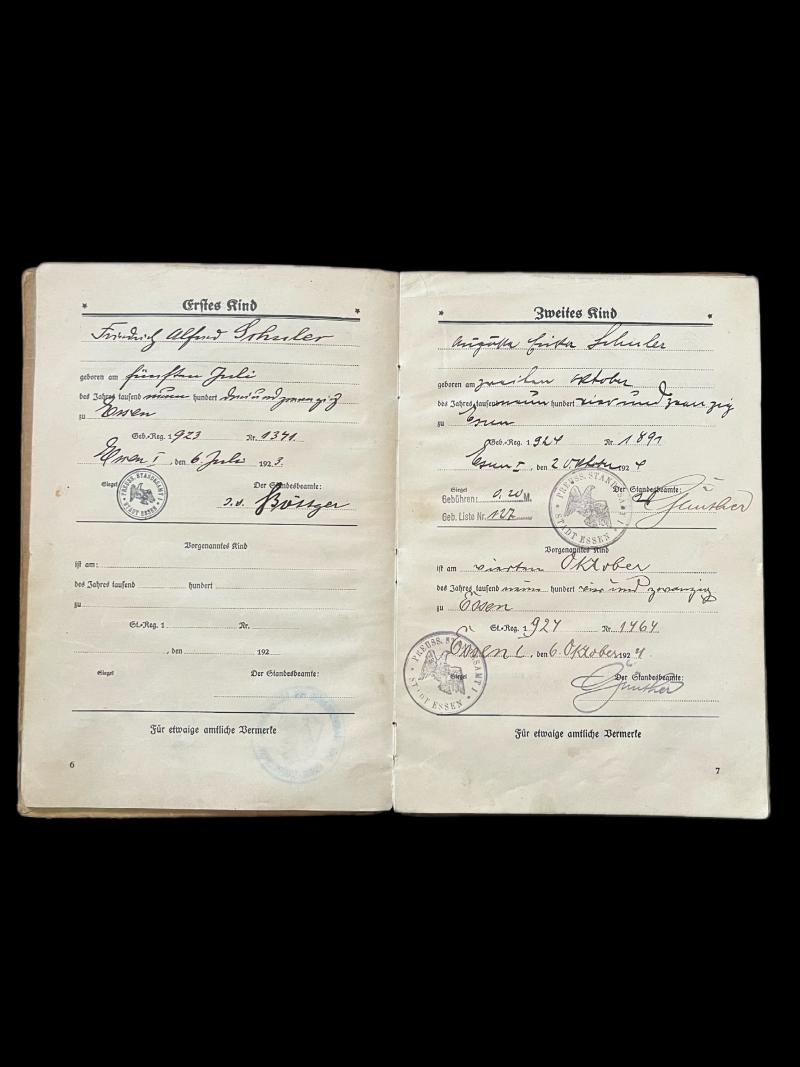 Erstes Kind
Friedrich Alfred Schuler
geboren am fünften Juli
des Jahres tausend neun hundert dreiundzwanzig
zu Essen
Geb.-Reg. 1923 Nr. 1341.
Essen I, den 6. Juli 1923.
Siegel Der Standesbeamte:
PREUSS. STANDESAMT I STADT ESSEN
I.V. Böttger
Vorgenanntes Kind
ist am:
des Jahres tausend hundert
zu
St.-Reg. 1 Nr.
, den 192
Siegel Der Standesbeamte:
Für etwaige amtliche Vermerke
6
Zweites Kind
Augusta Erika Schuler
geboren am zweiten Oktober
des Jahres tausend neun hundert vier und zwanzig
zu Essen
Geb.-Reg. 1924 Nr. 1891
Essen I, den 2 Oktober 1924
Siegel Der Standesbeamte:
Gebühren: 0.20 M.
Geb. Liste Nr. 127
PREUSS. STANDESAMT I STADT ESSEN
Günther
Vorgenanntes Kind
ist am vierten Oktober
des Jahres tausend neun hundert vier und zwanzig
zu Essen
St.-Reg. 1924 Nr. 1464
Essen I, den 6. Oktober 1924.
PREUSS. STANDESAMT I STADT ESSEN
Siegel Der Standesbeamte:
Günther
Für etwaige amtliche Vermerke
7